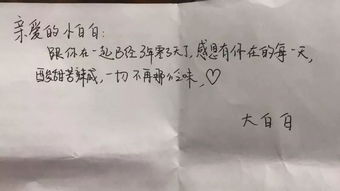 亲爱的小白白：
跟你在一起已经3年零3天了，感恩有你在的每一天，
酸甜苦辣咸，一切不再哪个味，♡
大白白